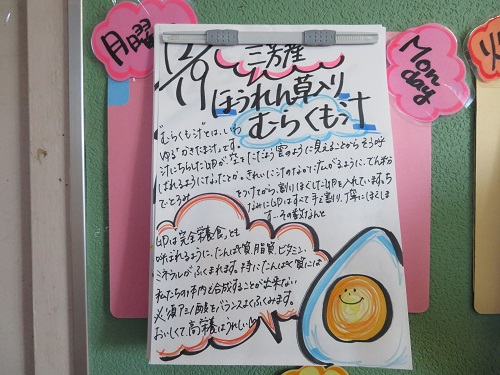 月曜
12/19
三芳産
ほうれん草入り
むらくも汁
Monday
火
"むらくも汁"とは、いわ
ゆる"かきたま汁"です。
汁にちらした卵が、
雲のように見えることからそう呼
ばれるようになったとか。きれいに汁のなかに広がるように、でん粉
でとろみ
をつけてから、割りほぐした卵を入れています。ち
なみに卵はすべて手で割り、丁寧にほぐしま
す…その数なんと
卵は"完全栄養食"とも
よばれるように、たんぱく質、脂質、ビタミン、
ミネラルがふくまれます。特にたんぱく質には
私たちの体内で合成することが出来ない
必須アミノ酸をバランスよくふくみます。
おいしくて、高栄養はうれしい